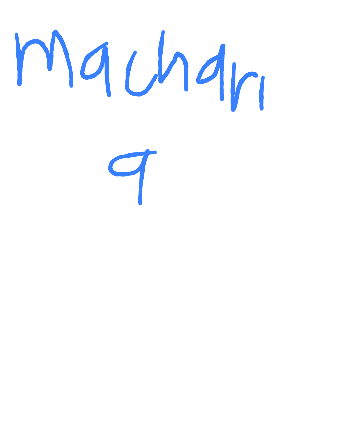 machari
a